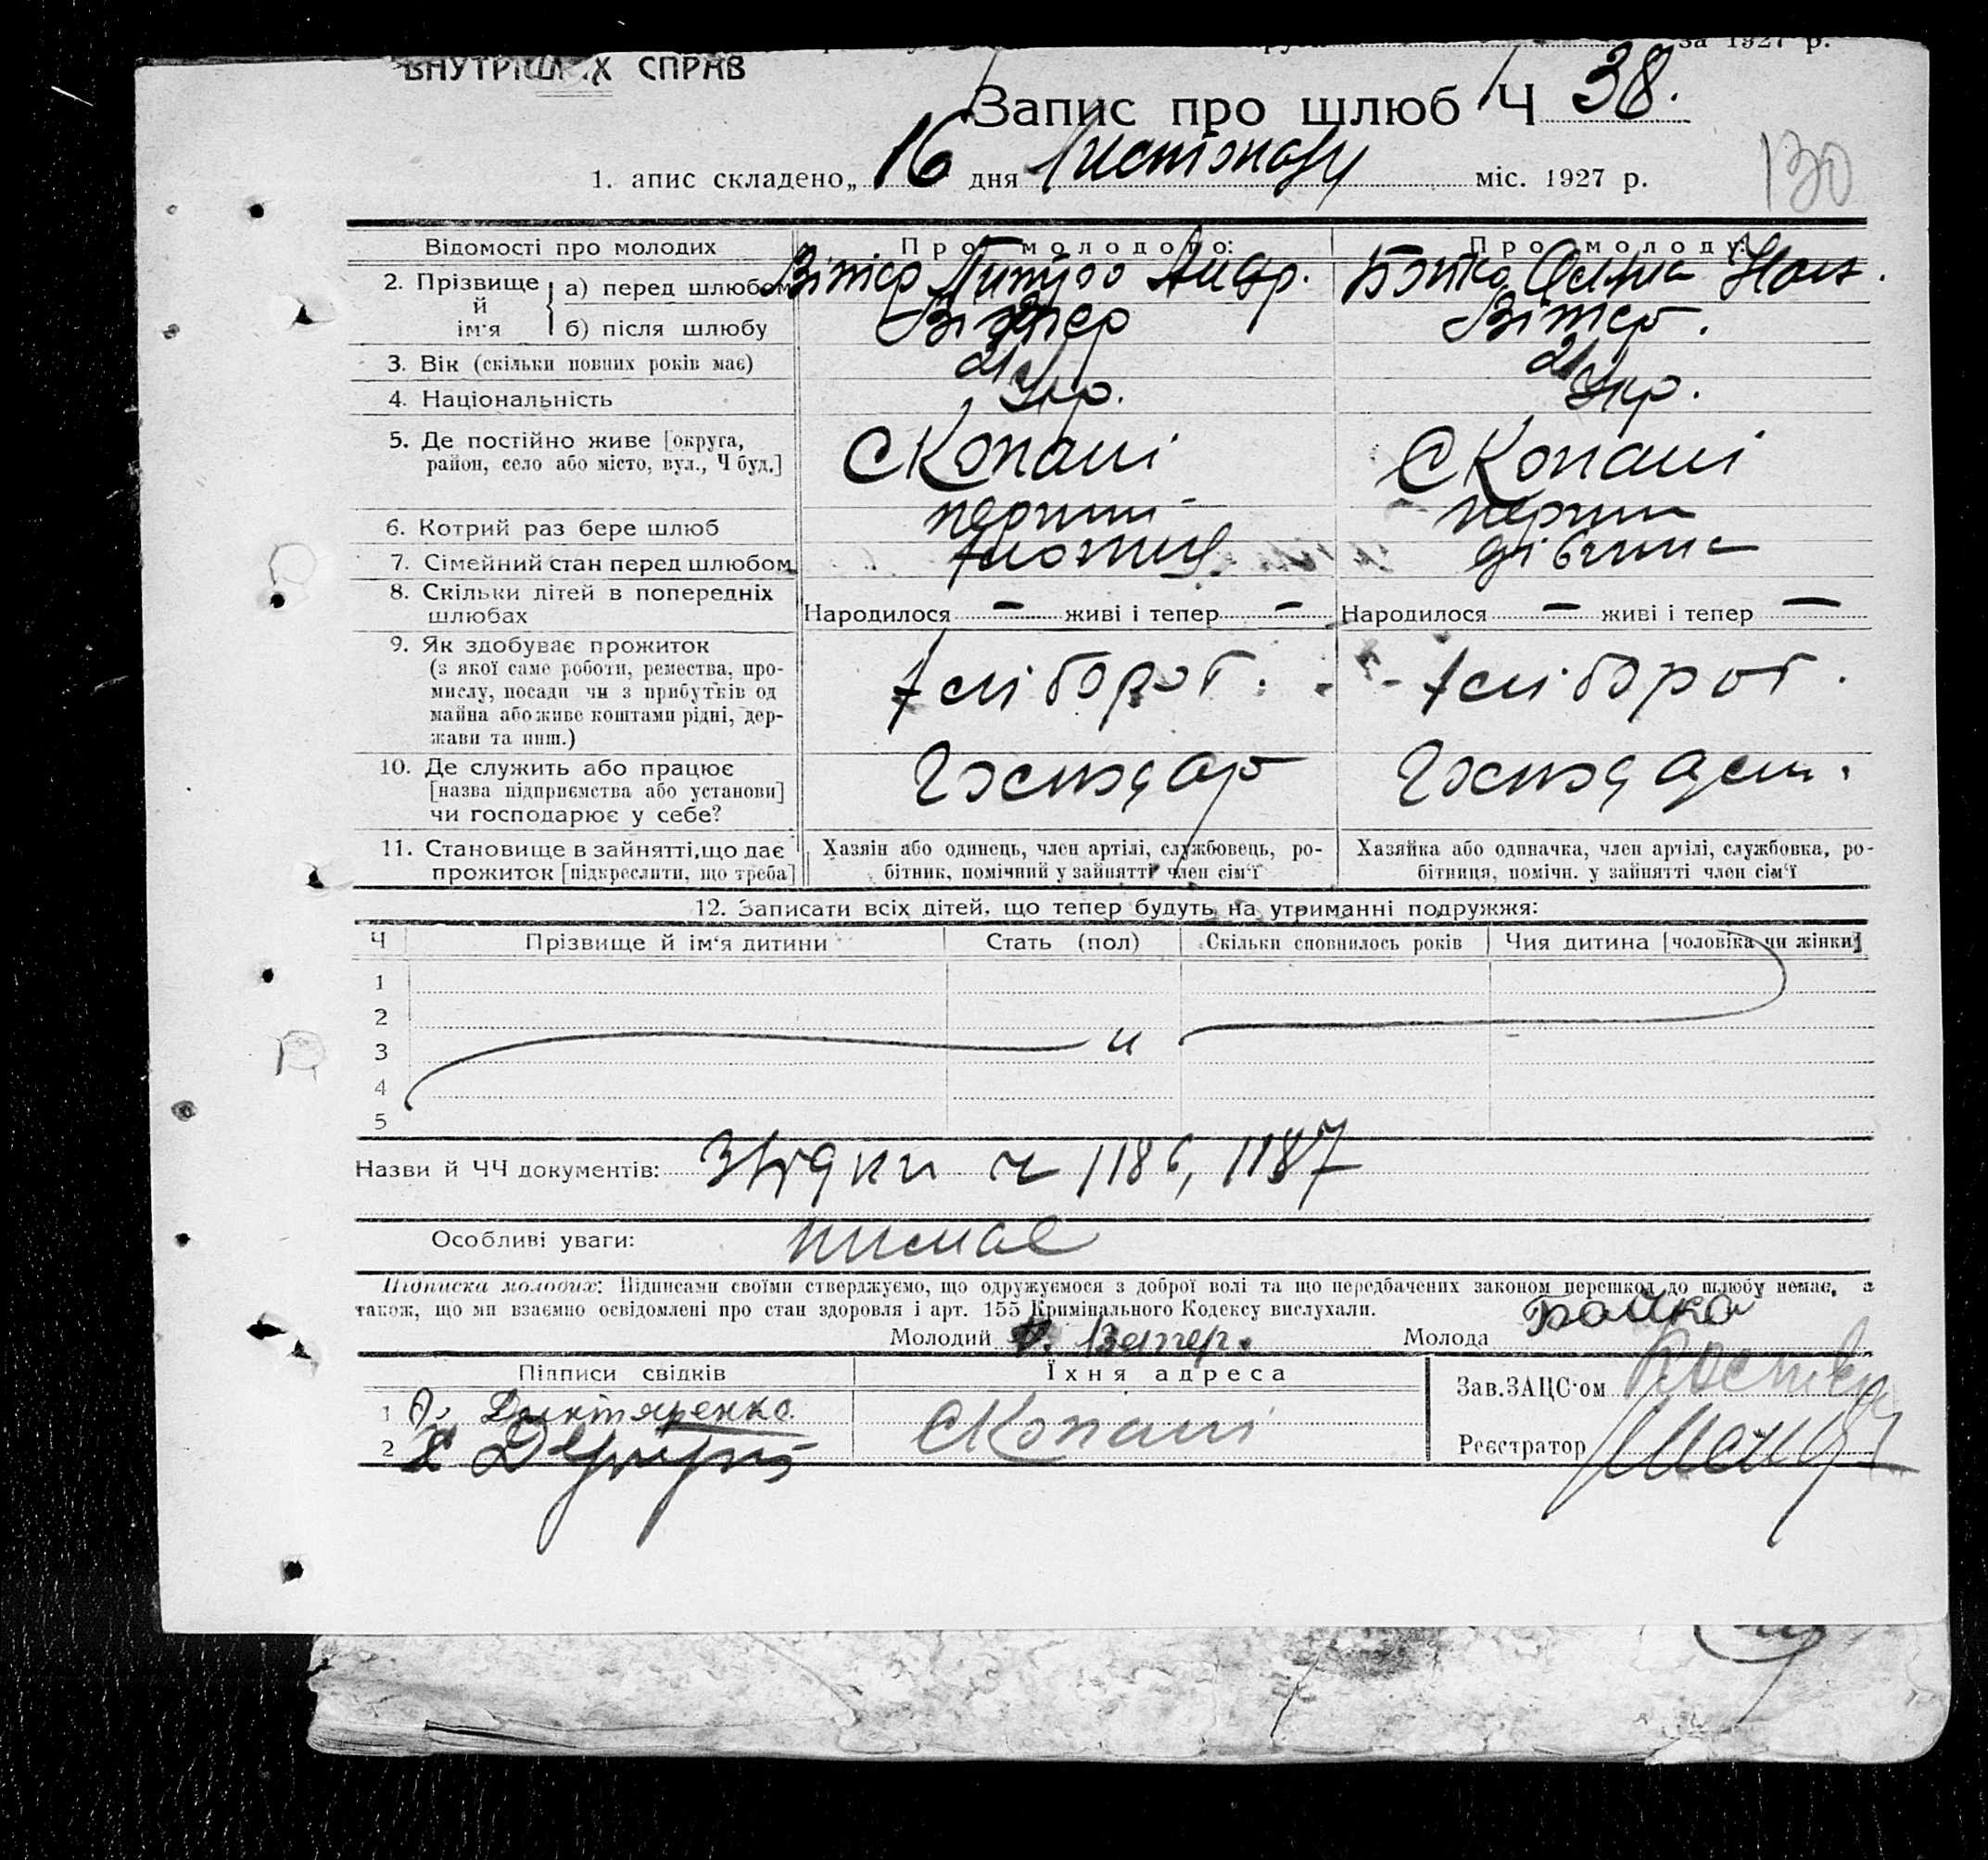 ВНУТРІШ ІХ СПРАВ
за 1927 р.
Запис про шлюб Ч 38.
130
1. апис складено „ 16 дня Листопаду міс. 1927 р.
Відомості про молодих Про молодого: Про молоду:
2. Прізвище й ім'я а) перед шлюбом Вітер Андр. Бойко
б) після шлюбу Вітер Вітер.
3. Вік (скільки повних років має) 21 21
4. Національність Укр. Укр.
5. Де постійно живе [округа, район, село або місто, вул., Ч буд.] С Копані С Копані
6. Котрий раз бере шлюб перший перш
7. Сімейний стан перед шлюбом дівчина
8. Скільки дітей в попередніх шлюбах Народилося – живі і тепер – Народилося – живі і тепер –
9. Як здобуває прожиток
(з якої саме роботи, ремества, про-
мислу, посади чи з прибутків од
майна або живе коштами рідні, дер-
жави та инш.) хліборог. хліборог.
10. Де служить або працює
[назва підприємства або установи]
чи господарює у себе? Господар
11. Становище в зайнятті, що дає прожиток [підкреслити, що треба] Хазяїн або одинець, член артілі, службовець, ро-
бітник, помічний у зайнятті член сім'ї Хазяйка або одиначка, член артілі, службовка, ро-
бітниця, помічн. у зайнятті член сім'ї
12. Записати всіх дітей, що тепер будуть на утриманні подружжя:
Ч Прізвище й ім'я дитини Стать (пол) Скільки сповнилось років Чия дитина [чоловіка чи жінки]
1
2
3
4
5
Назви й ЧЧ документів: ч 1186, 1187
Особливі уваги: нимає
Підписка молодих: Підписами своїми стверджуємо, що одружуємося з доброї волі та що передбачених законом перешкод до шлюбу немає, а
також, що ми взаємно освідомлені про стан здоровля і арт. 155 Кримінального Кодексу вислухали.
Молодий Ветер. Молода Бойко
Підписи свідків Їхня адреса Зав. ЗАЦС'ом
1 С Копані
2 Реєстратор